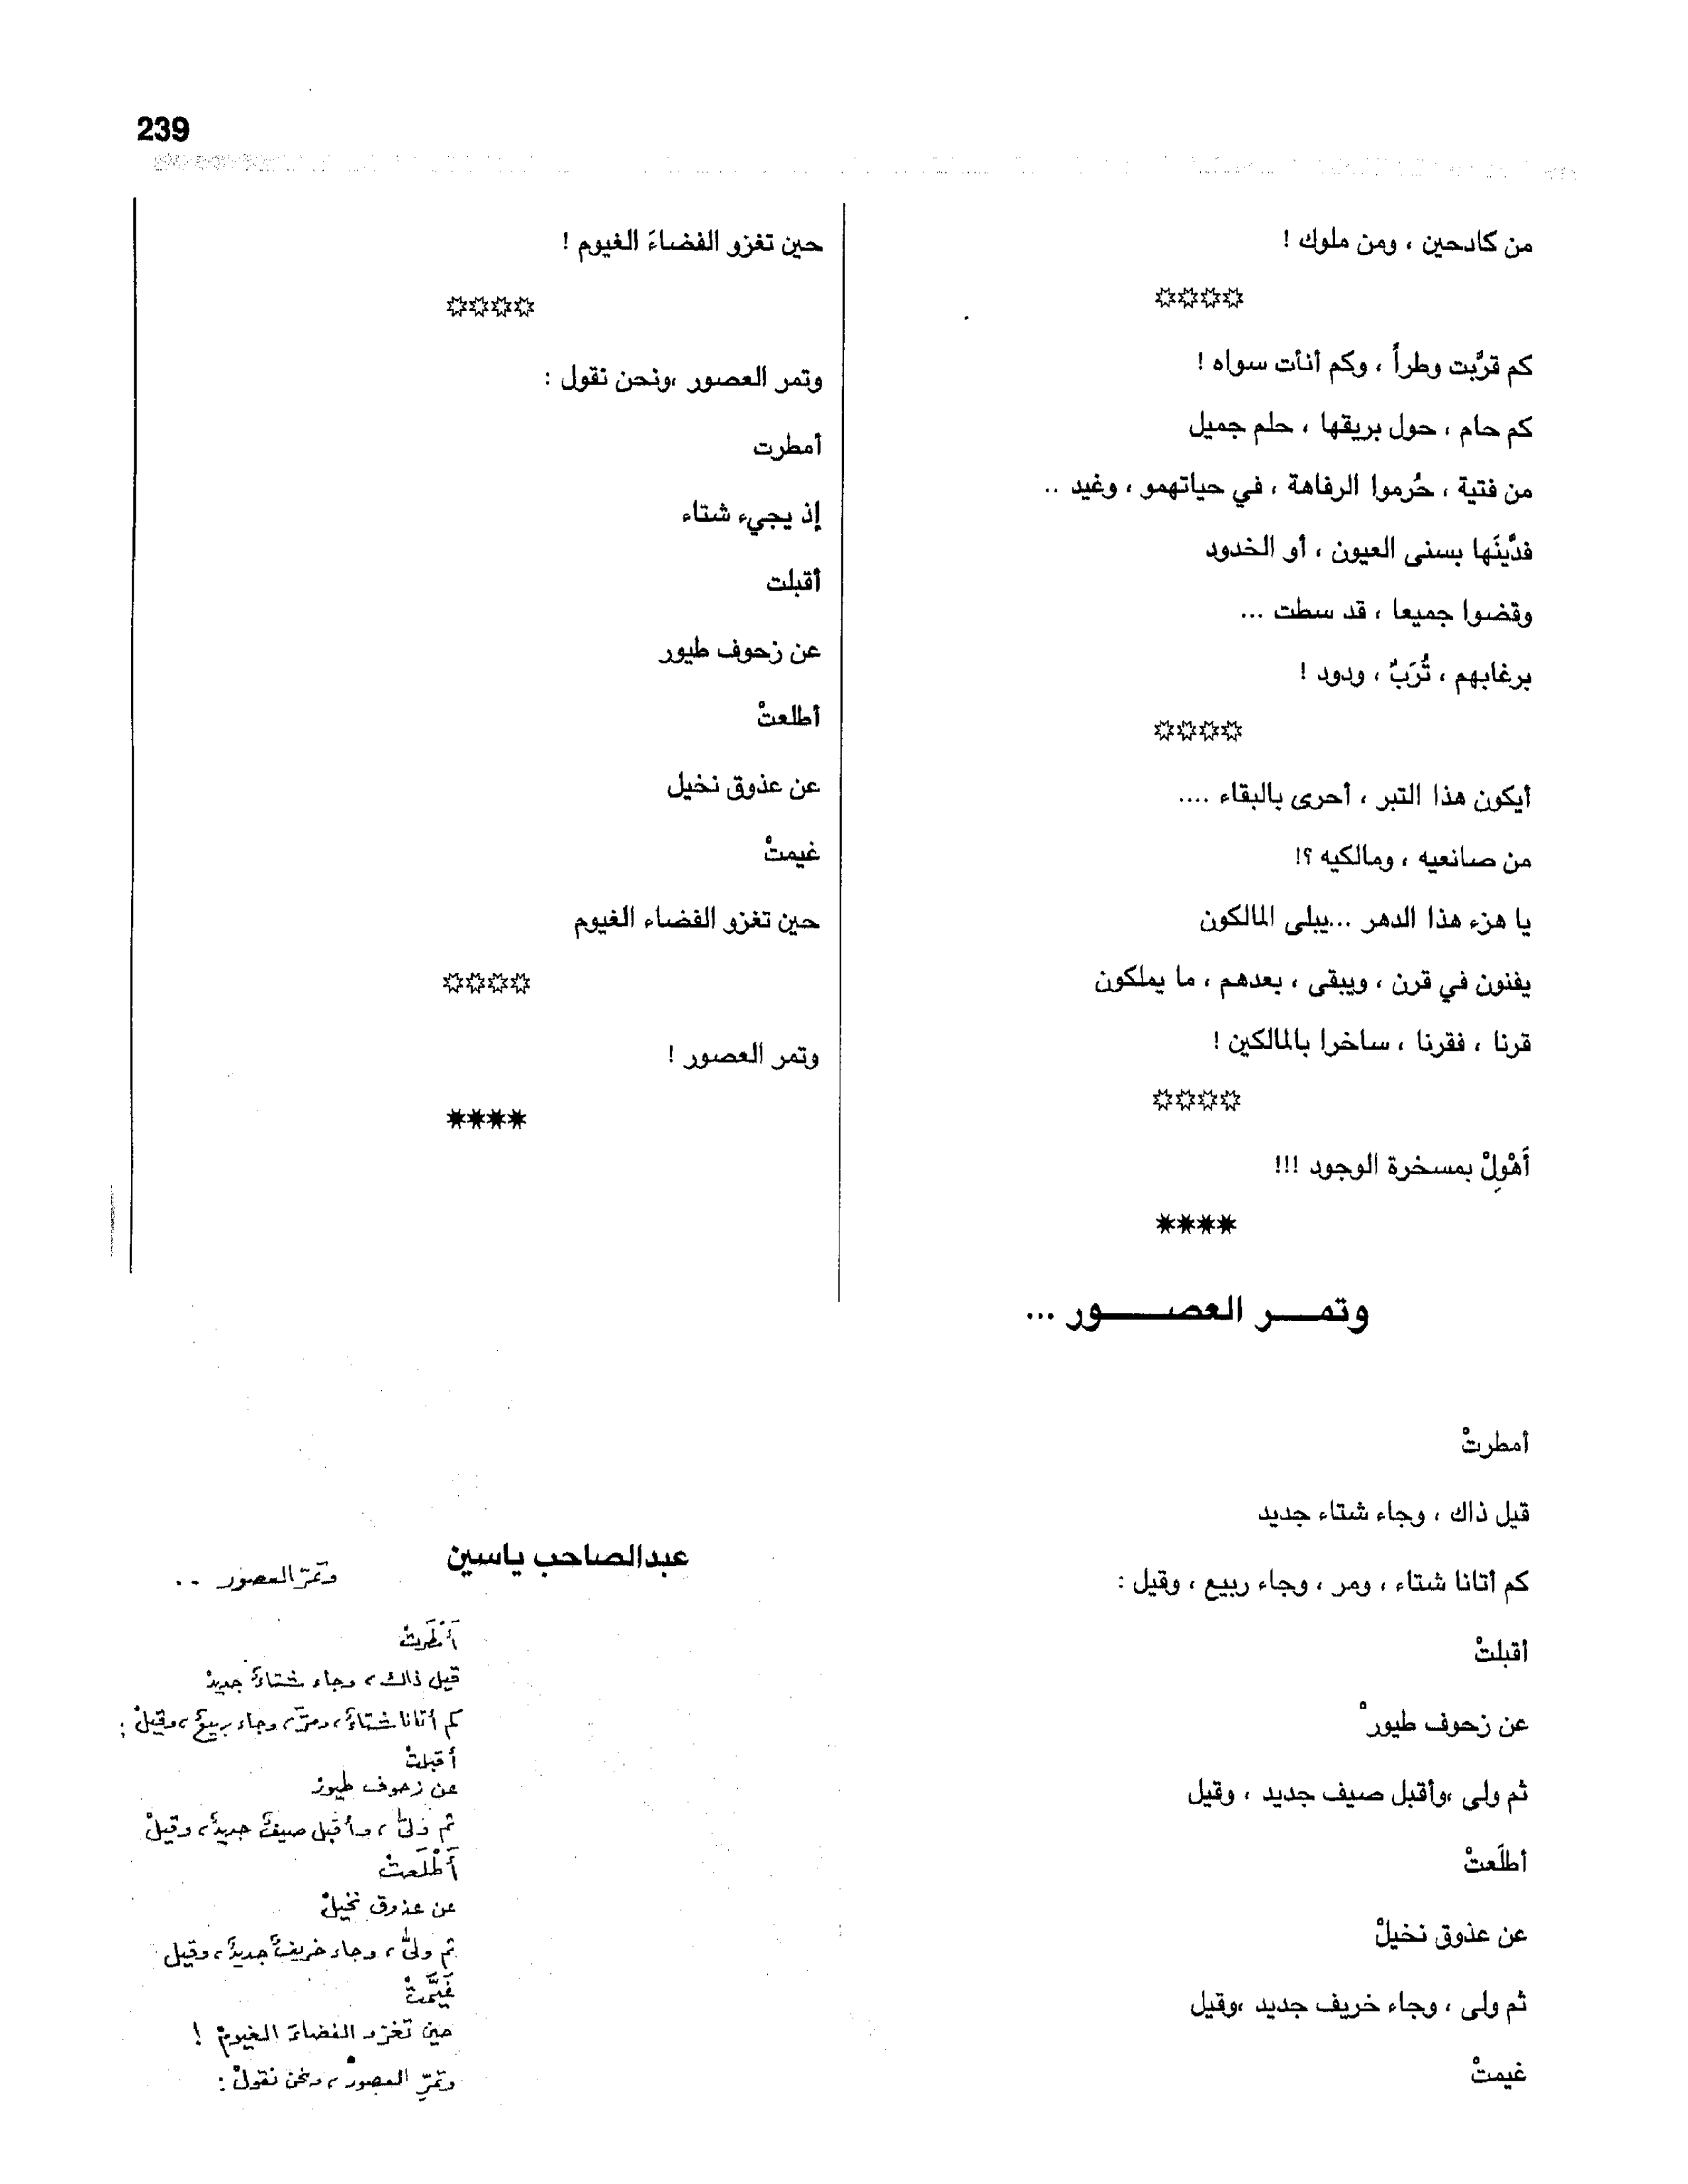 239
من كادحين ، ومن ملوك !
☼☼☼☼
كم قرَّبت وطراً ، وكم أنأت سواه !
كم حام ، حول بريقها ، حلم جميل
من فتية ، حُرموا الرفاهة ، في حياتهمو ، وغيد ..
فدَّينَها بسنى العيون ، أو الخدود
وقضوا جميعا ، قد سطت ...
برغابهم ، تُرَبٌ ، ودود !
☼☼☼☼
أيكون هذا التبر ، أحرى بالبقاء ....
من صانعيه ، ومالكيه ؟!
يا هزء هذا الدهر ...يبلى المالكون
يفنون في قرن ، ويبقى ، بعدهم ، ما يملكون
قرنا ، فقرنا ، ساخرا بالمالكين !
☼☼☼☼
أَهْوِلْ بمسخرة الوجود !!!
✷✷✷✷
وتمـــر العصـــــور ...
أمطرتْ
قيل ذاك ، وجاء شتاء جديد
كم أتانا شتاء ، ومر ، وجاء ربيع ، وقيل :
أقبلتْ
عن زحوف طيورْ
ثم ولى ،وأقبل صيف جديد ، وقيل
أطلَعتْ
عن عذوق نخيلْ
ثم ولى ، وجاء خريف جديد ،وقيل
غيمتْ
حين تغزو الفضاءَ الغيوم !
☼☼☼☼
وتمر العصور ،ونحن نقول :
أمطرت
إذ يجيء شتاء
أقبلت
عن زحوف طيور
أطلعتْ
عن عذوق نخيل
غيمتْ
حين تغزو الفضاء الغيوم
☼☼☼☼
وتمر العصور !
✷✷✷✷
عبدالصاحب ياسين
وتمرّ العصور ..
أَمْطَرتْ
قيل ذاك ، وجاء شتاءٌ جديدْ
كم أتانا شتاءٌ ، ومرّ ، وجاء ربيعٌ ، وقيلْ :
أقبلتْ
عن زحوف طيورْ
ثم ولىّ ، وأقبل صيفٌ جديدٌ ، وقيلْ
أَطْلَعتْ
عن عذوق نخيلْ
ثم ولىّ ، وجاء خريفٌ جديدٌ ، وقيل
غَيَّمتْ
حين تغزو الفضاءَ الغيومْ !
وتمرّ العصورُ ، ونحن نقولْ :